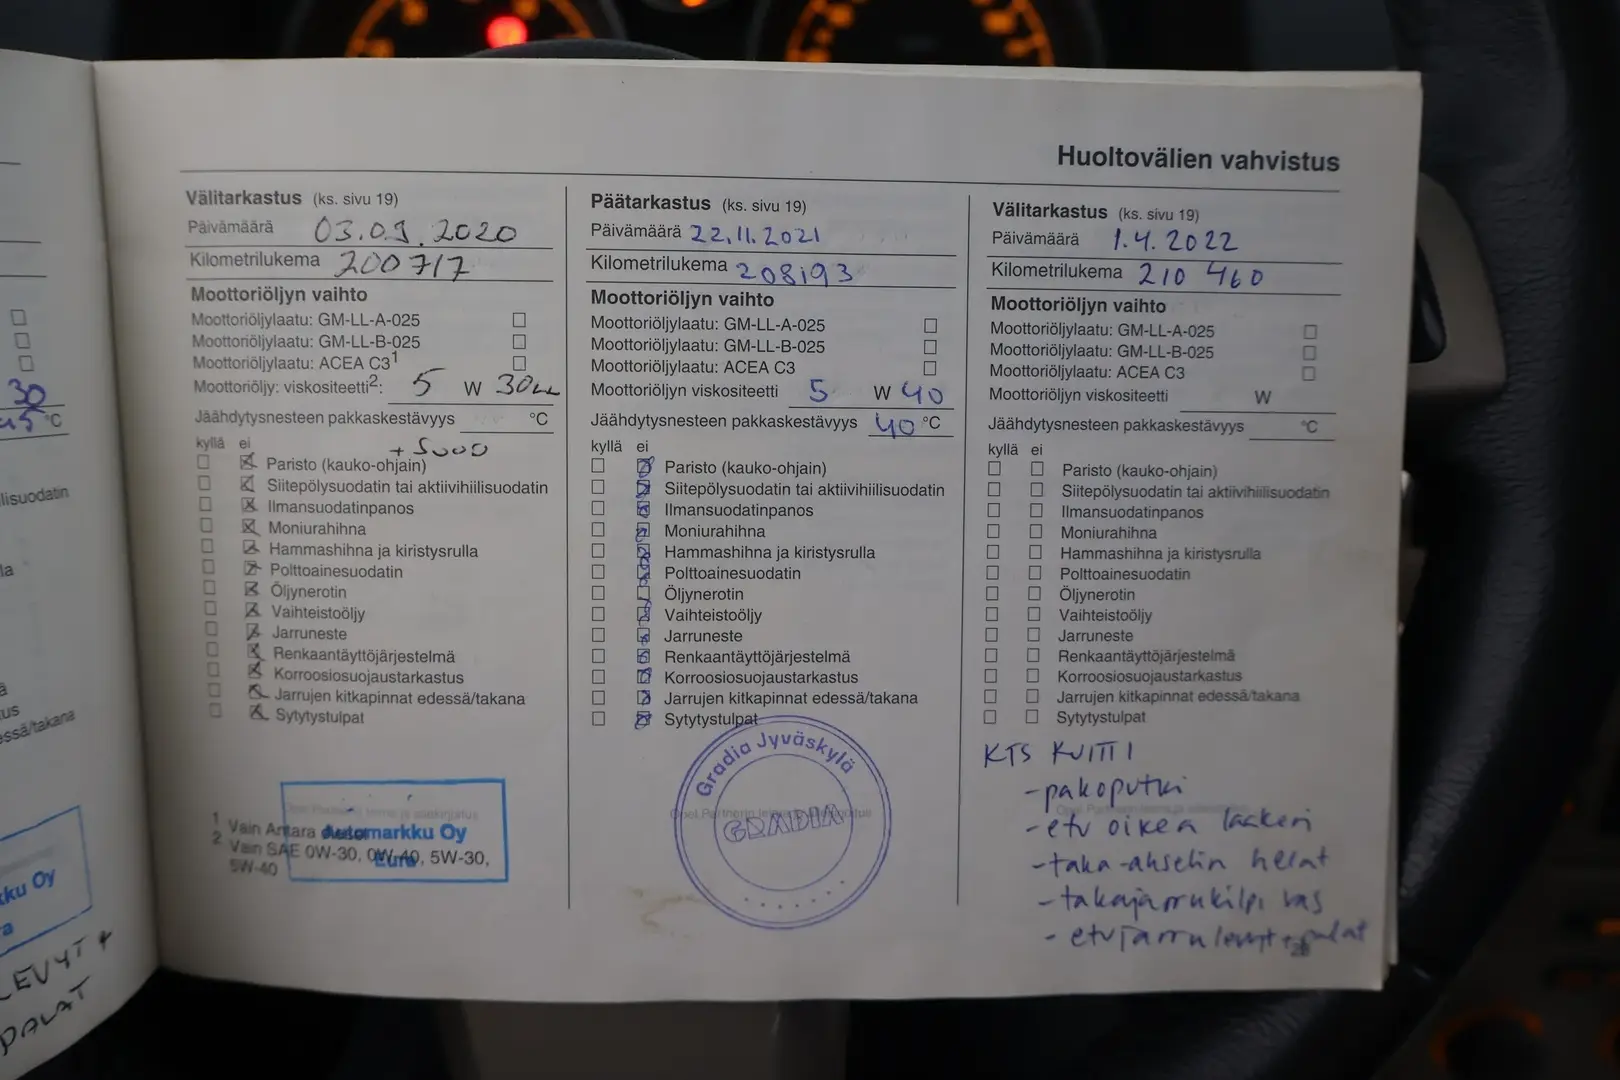 30
45 °C
lisuodatin
la
ä
us
essä/takana
ku Oy
a
LEVYT +
PALAT
Huoltovälien vahvistus
Välitarkastus (ks. sivu 19)
Päivämäärä 03.09.2020
Kilometrilukema 200717
Moottoriöljyn vaihto
Moottoriöljylaatu: GM-LL-A-025
Moottoriöljylaatu: GM-LL-B-025
Moottoriöljylaatu: ACEA C3¹
Moottoriöljy: viskositeetti²: 5 W 30LL
Jäähdytysnesteen pakkaskestävyys °C
kyllä ei + 5000
Paristo (kauko-ohjain)
Siitepölysuodatin tai aktiivihiilisuodatin
Ilmansuodatinpanos
Moniurahihna
Hammashihna ja kiristysrulla
Polttoainesuodatin
Öljynerotin
Vaihteistoöljy
Jarruneste
Renkaantäyttöjärjestelmä
Korroosiosuojaustarkastus
Jarrujen kitkapinnat edessä/takana
Sytytystulpat
Automarkku Oy
Euro
1 Vain Antara
2 Vain SAE 0W-30, 0W-40, 5W-30,
5W-40
Päätarkastus (ks. sivu 19)
Päivämäärä 22.11.2021
Kilometrilukema 208193
Moottoriöljyn vaihto
Moottoriöljylaatu: GM-LL-A-025
Moottoriöljylaatu: GM-LL-B-025
Moottoriöljylaatu: ACEA C3
Moottoriöljyn viskositeetti 5 W 40
Jäähdytysnesteen pakkaskestävyys 40 °C
kyllä ei
Paristo (kauko-ohjain)
Siitepölysuodatin tai aktiivihiilisuodatin
Ilmansuodatinpanos
Moniurahihna
Hammashihna ja kiristysrulla
Polttoainesuodatin
Öljynerotin
Vaihteistoöljy
Jarruneste
Renkaantäyttöjärjestelmä
Korroosiosuojaustarkastus
Jarrujen kitkapinnat edessä/takana
Sytytystulpat
Gradia Jyväskylä
Opel Partnerin leima ja allekirjoitus
GRADIA
Välitarkastus (ks. sivu 19)
Päivämäärä 1.4.2022
Kilometrilukema 210 460
Moottoriöljyn vaihto
Moottoriöljylaatu: GM-LL-A-025
Moottoriöljylaatu: GM-LL-B-025
Moottoriöljylaatu: ACEA C3
Moottoriöljyn viskositeetti W
Jäähdytysnesteen pakkaskestävyys °C
kyllä ei
Paristo (kauko-ohjain)
Siitepölysuodatin tai aktiivihiilisuodatin
Ilmansuodatinpanos
Moniurahihna
Hammashihna ja kiristysrulla
Polttoainesuodatin
Öljynerotin
Vaihteistoöljy
Jarruneste
Renkaantäyttöjärjestelmä
Korroosiosuojaustarkastus
Jarrujen kitkapinnat edessä/takana
Sytytystulpat
KTS KUITTI
- pakoputki
- etu oikea laakeri
- taka-akselin helat
- takajarrukilpi vas
- etujarrulevyt + palat